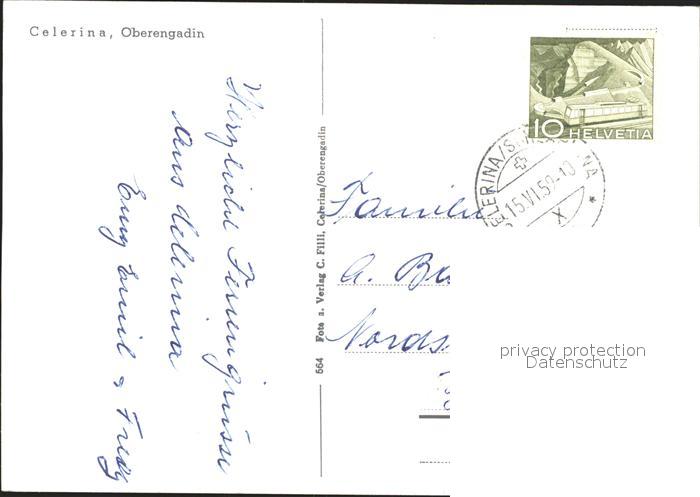 Celerina, Oberengadin
Herzliche Feriengrüsse
aus Celerina
Emil & Fredy
564 Foto u. Verlag C. Filli, Celerina/Oberengadin
10 HELVETIA
CELERINA/S
15.VI.59-10
X
Familie
A. Ba
Nords
privacy protection
Datenschutz